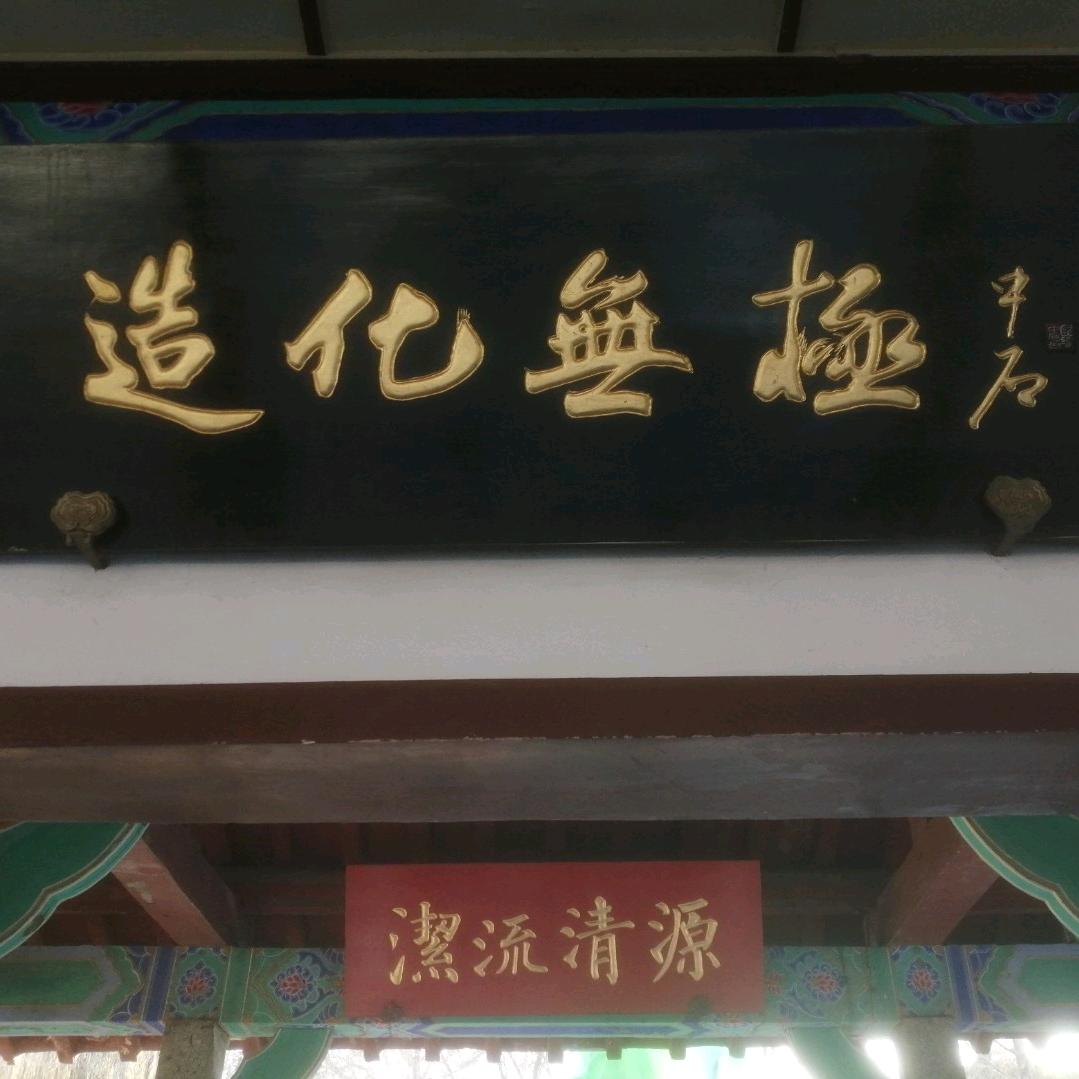 造化無極
中石
源清流潔